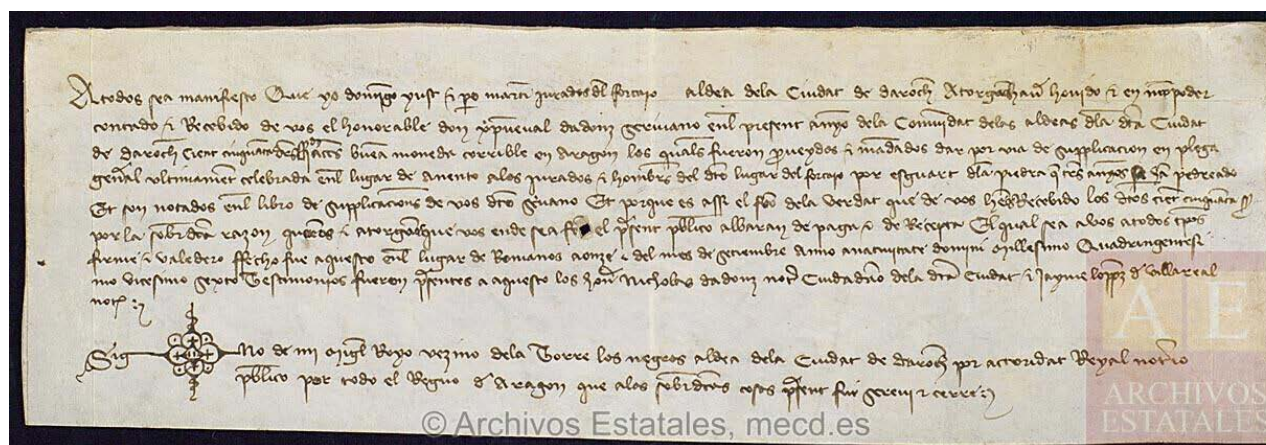 A todos sea manifiesto Que yo domingo yust & pero martin jurados del forcajo aldea dela Ciudat de daroch Atorgamos haver hovido & en poder
contado & Recebido de vos el honorable don dadom scrivano enel present anyo dela Comunidat delas aldeas dela dita Ciudat
de daroch buena moneda corrible en aragon los quals fueron proveydos & mandados dar por via de supplicacion en plega
general ultimament celebrada enel lugar de anento alos jurados & hombres del dito lugar del forcajo por esguart dela piedra que tres anyos se ha pedreado
Et son notados enel libro de supplicacions de vos dito scrivano Et porque es assi el feito dela verdat que de vos hemos Recebido los ditos cient cinquanta
por la sobredita razon queremos & atorgamos que vos ende sea feito el present publico albaran de paga & de Recepta El qual sea a vos a todos tiempos
firme & valedero ffecho fue aquesto enel lugar de Romanos a onze del mes de setiembre anno anativitate domini Millesimo Quadringentesi
mo vicesimo sexto Testimonios fueron presentes a aquesto los honorables Nicholas dadom notario Ciudadano dela dita Ciudat & Jayme loppez de villareal
notario
Sig no de mi Miguel Royo vezino dela Torre los negros aldea dela Ciudat de daroch por actoridat Reyal notario
publico por todo el Regno d Aragon que alas sobreditas cosas present fue screvi & cerre
AE
ARCHIVOS
ESTATALES
© Archivos Estatales, mecd.es